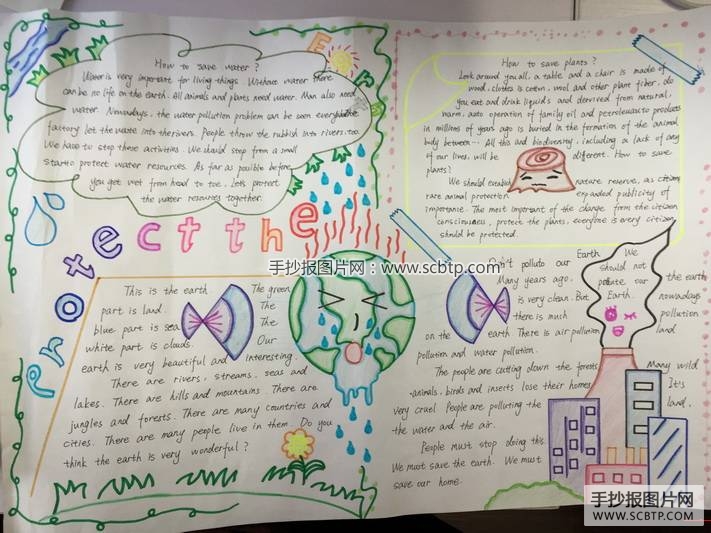 How to save water?
Water is very important for living things. Without water there
can be no life on the earth. All animals and plants need water. Man also need
water. Nowadays, the water pollution problem can be seen everywhere
factory let the waste into the rivers. People throw the rubbish into rivers, too.
We have to stop these activities. We should stop from a small
start to protect water resources. As far as posible before
you get wet from head to toe. Let's protect
the water resources together.
Protect the
E r
How to save plants?
Look around you all, a table and a chair is made of
wood, clothes is cotton, wool and other plant fiber, do
you eat and drink liquids and derived from natural,
harm, auto operation of family oil and petroleum to products
in millions of years ago is buried in the formation of the animal
body between... All this and biodiversity, including a lack of any
of our lives, will be different. How to save
plants?
We should establish nature reserve, as citizen
rare animal protection expanded publicity of
importance. The most important of the change from the citizen
consciousness, protect the plants, everyone is every citizen
should be protected.
手抄报图片网：www.scbtp.com
This is the earth The green
part is land. The
blue part is sea The
white part is clouds. Our
earth is very beautiful and interesting.
There are rivers, streams, seas and
lakes. There are hills and mountains. There are
jungles and forests. There are many countries and
cities. There are many people live in them. Do you
think the earth is very wonderful?
Don't pollute our Earth We
should not
pollute our
Earth.
Many years ago, the earth
is very clean. But nowadays
there is much pollution
on the earth. There is air pollution land
pollution and water pollution.
The people are cutting down the forests Many wild
animals, birds and insects lose their homes. It's
very cruel People are polluting the land,
the water and the air.
People must stop doing this.
We must save the earth. We must
save our home.
手抄报图片网
WWW.SCBTP.COM